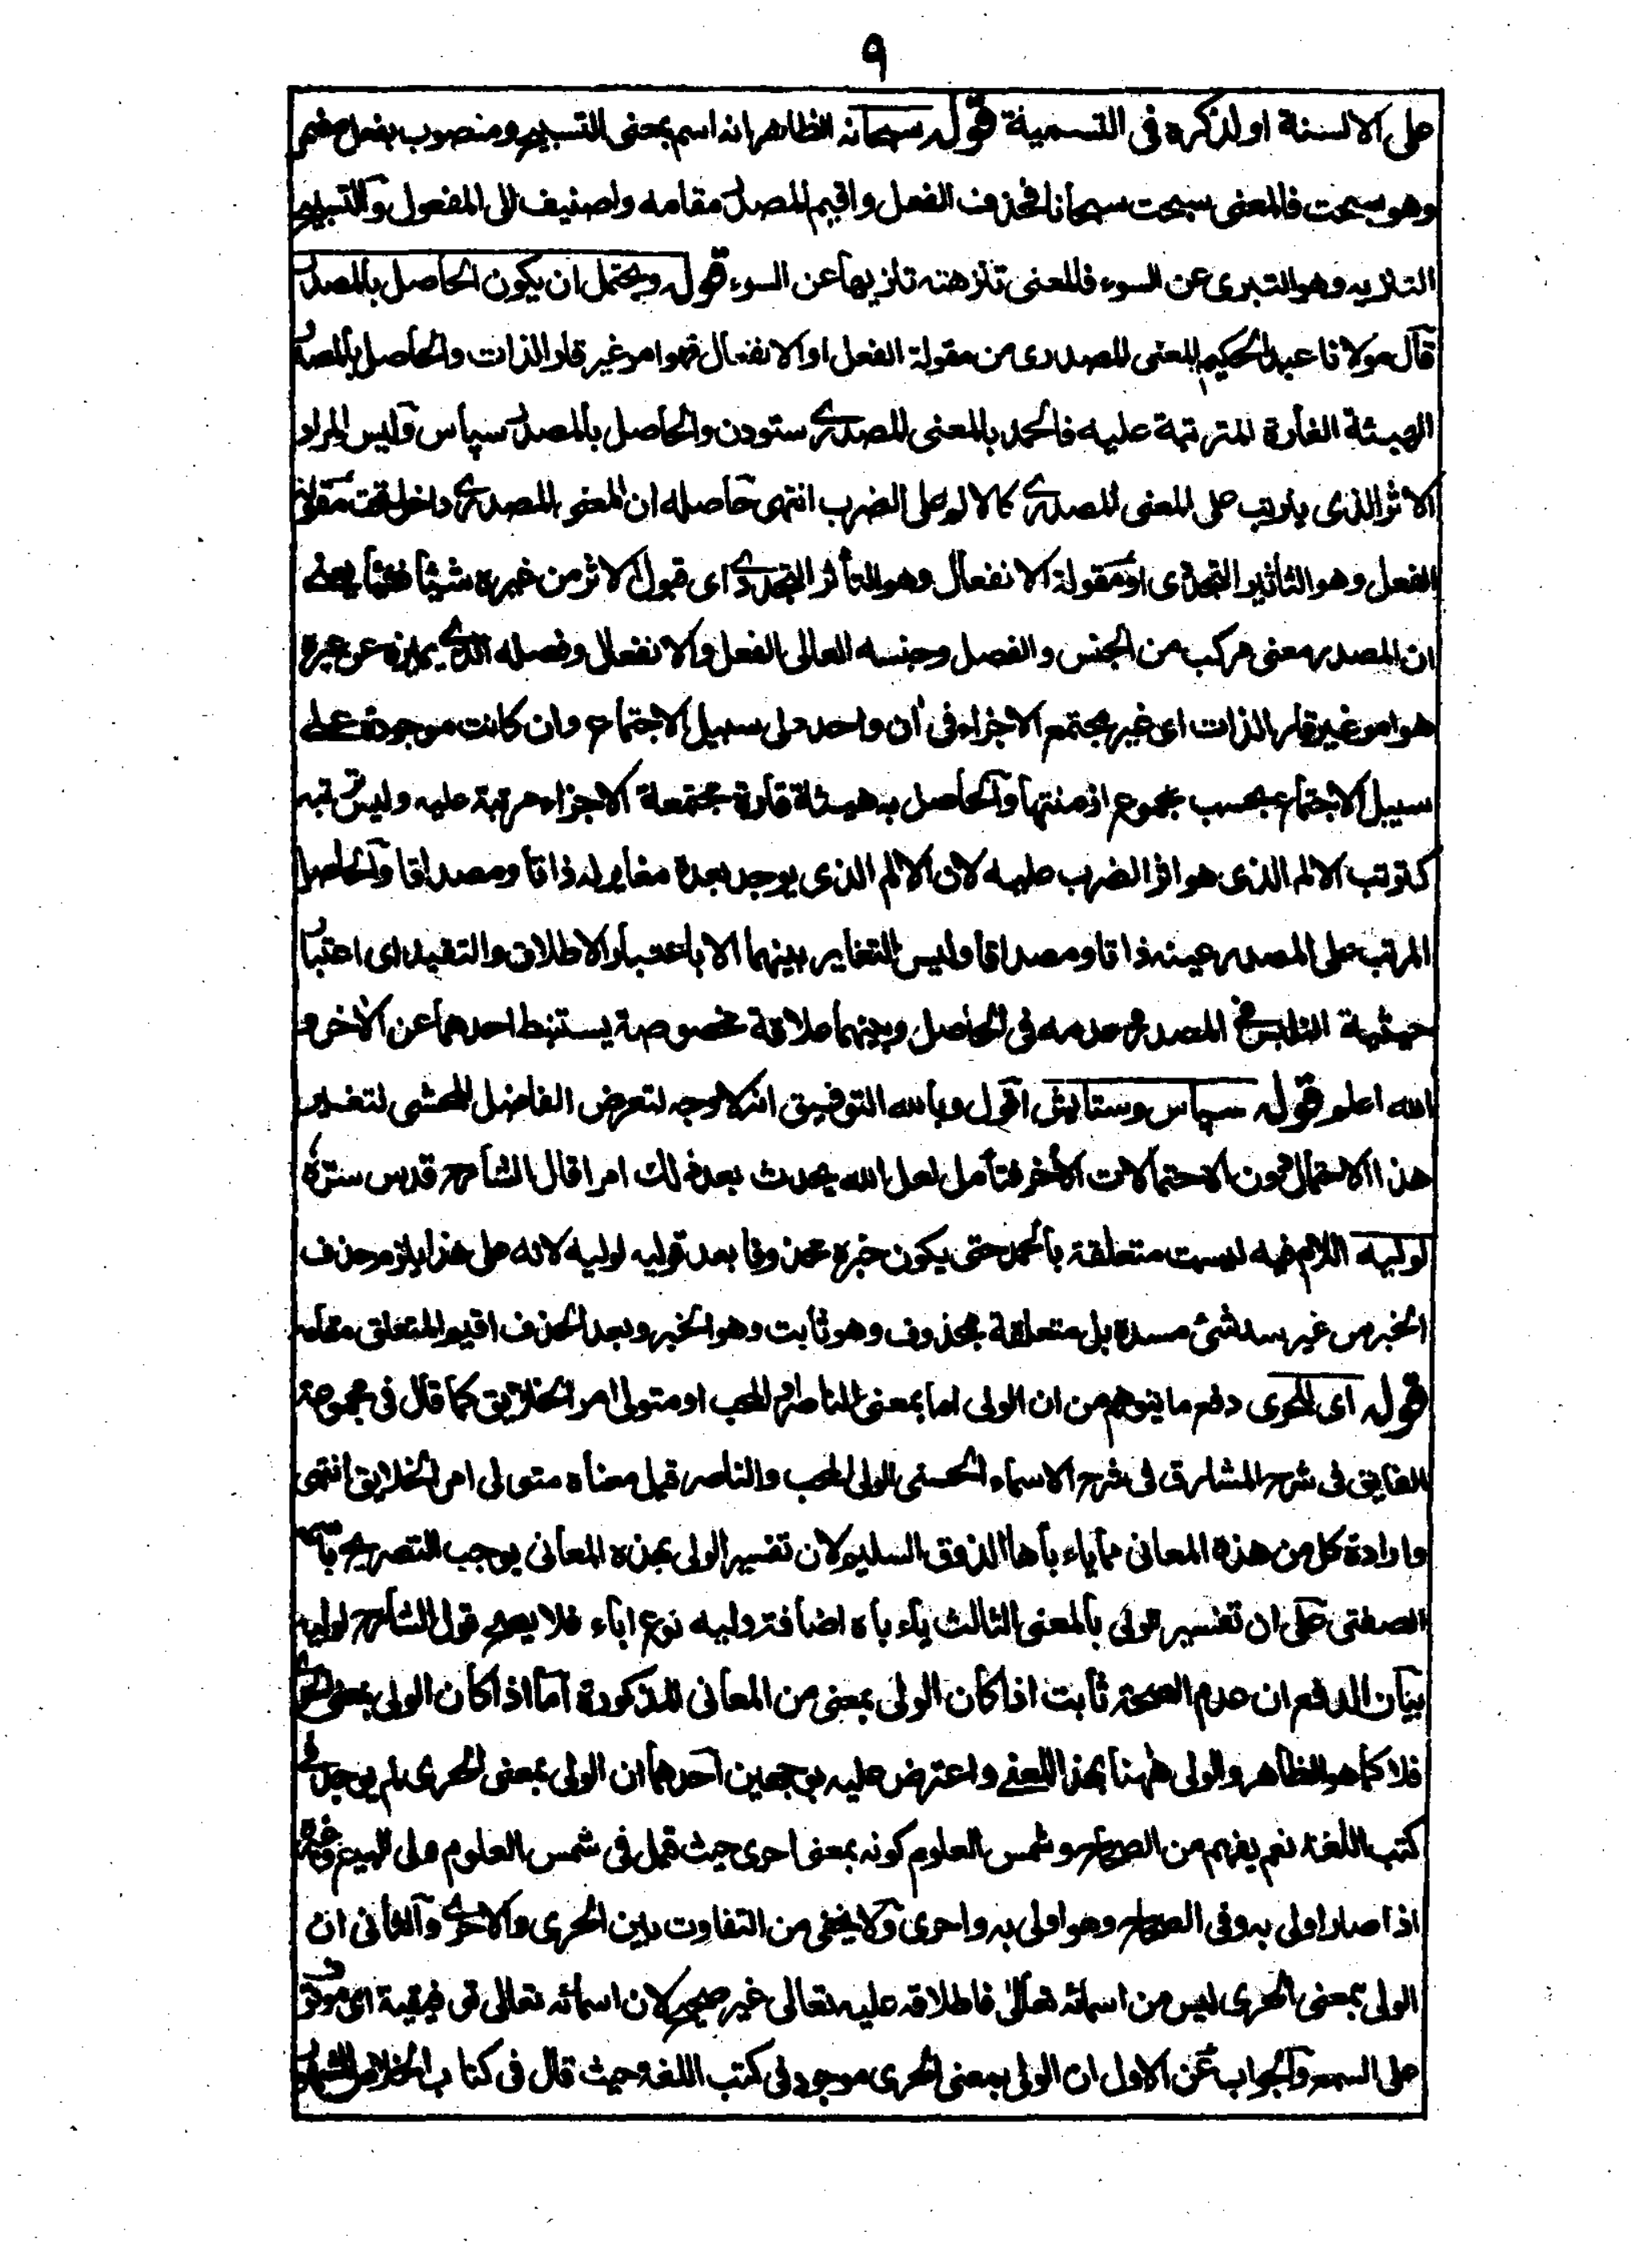 ٩
على الالسنة او لذكره فى التسمية قوله سبحانه الظاهر انه اسم بمعنى التسبيح ومنصوب بفعل مضمر
وهو سبحت فالمعنى سبحت سبحانا فحذف الفعل واقيم المصدر مقامه واضيف الى المفعول والتسبيح
التنزيه وهو التبرى عن السوء فالمعنى تنزهته تنزيها عن السوء قوله ويحتمل ان يكون الحاصل بالمصدر
قال مولانا عبد الحكيم المعنى المصدرى من مقولة الفعل او الانفعال فهو امر غير قار الذات والحاصل بالمصدر
الهيئة القارة المترتبة عليه فالحمد بالمعنى المصدرى ستودن والحاصل بالمصدر سپاس وليس المراد
الاثر الذى يترتب على المعنى المصدرى كالالم على الضرب انتهى حاصله ان المعنى المصدرى داخل تحت مقولة
الفعل وهو التاثير التجددى او مقولة الانفعال وهو التأثر التجددى اى قبول الاثر من غيره شيئا فشيئا يعنى
ان المصدر معنى مركب من الجنس والفصل وجنسه العالى الفعل والانفعال وفصله الذى يميزه عن غيره
هو امر غير قار الذات اى غير مجتمع الاجزاء فى أن واحد على سبيل الاجتماع وان كانت موجودة على
سبيل الاجتماع بحسب مجموع ازمنتها والحاصل به هيئة قارة مجتمعة الاجزاء مرتبة عليه وليس ترتبه
كترتب الالم الذى هو اثر الضرب عليه لان الالم الذى يوجد بعده مغاير له ذاتا ومصداقا والحاصل
المرتب على المصدر عينه ذاتا ومصداقا وليس التغاير بينهما الا باعتبار الاطلاق والتقييد اى اعتبار
حيثية التلبس فى المصدر وعدمه فى الحاصل وبينهما علاقة مخصوصة يستنبط احدهما عن الأخر و
الله اعلم قوله سپاس وستايش اقول وبالله التوفيق انه لا وجه لتعرض الفاضل المحشى لتفسير
هذا الاحتمال دون الاحتمالات الأخر فتأمل لعل الله يحدث بعد ذلك امرا قال الشارح قدس سره
لوليه اللام فيه ليست متعلقة بالحمد حتى يكون خبره محذوفا بعد قوليه لوليه لانه على هذا يلزم حذف
الخبر من غير سد شئ مسده بل متعلقة بمحذوف وهو ثابت وهو الخبر وبعد الحذف اقيم المتعلق مقامه
قوله اى الحرى دفع ما يتوهم من ان الولى اما بمعنى الناصر او المحب او متولى امر الخلايق كما قال فى مجموعة
الفايق فى شرح المشارق فى شرح الاسماء الحسنى الولى المحب والناصر قيل معناه متولى امر الخلايق انتهى
وارادة كل من هذه المعانى مما ياباها الذوق السليم لان تفسير الولى بهذه المعانى يوجب التصريح
الصفتى على ان تفسير الولى بالمعنى الثالث ياباه اضافته وليه نوع اباء فلا يصح قول الشارح لوليه
بيان الدفع ان عدم الصحة ثابت اذا كان الولى بمعنى من المعانى المذكورة اما اذا كان الولى بمعنى الحرى
فلا كما هو الظاهر والولى ههنا بهذا المعنى واعترض عليه بوجهين احدهما ان الولى بمعنى الحرى لم يوجد فى
كتب اللغة نعم يفهم من الصحاح وشمس العلوم كونه بمعنى احرى حيث قيل فى شمس العلوم
اذا صار اولى به وفى الصحاح وهو اولى به واحرى ولا يخفى من التفاوت بين الحرى والاحرى والثانى ان
الولى بمعنى الحرى ليس من اسمائه تعالى فاطلاقه عليه تعالى غير صحيح لان اسمائه تعالى توقيفية اى موقوف
على السمع والجواب عن الاول ان الولى بمعنى الحرى موجود فى كتب اللغة حيث قال فى كتاب